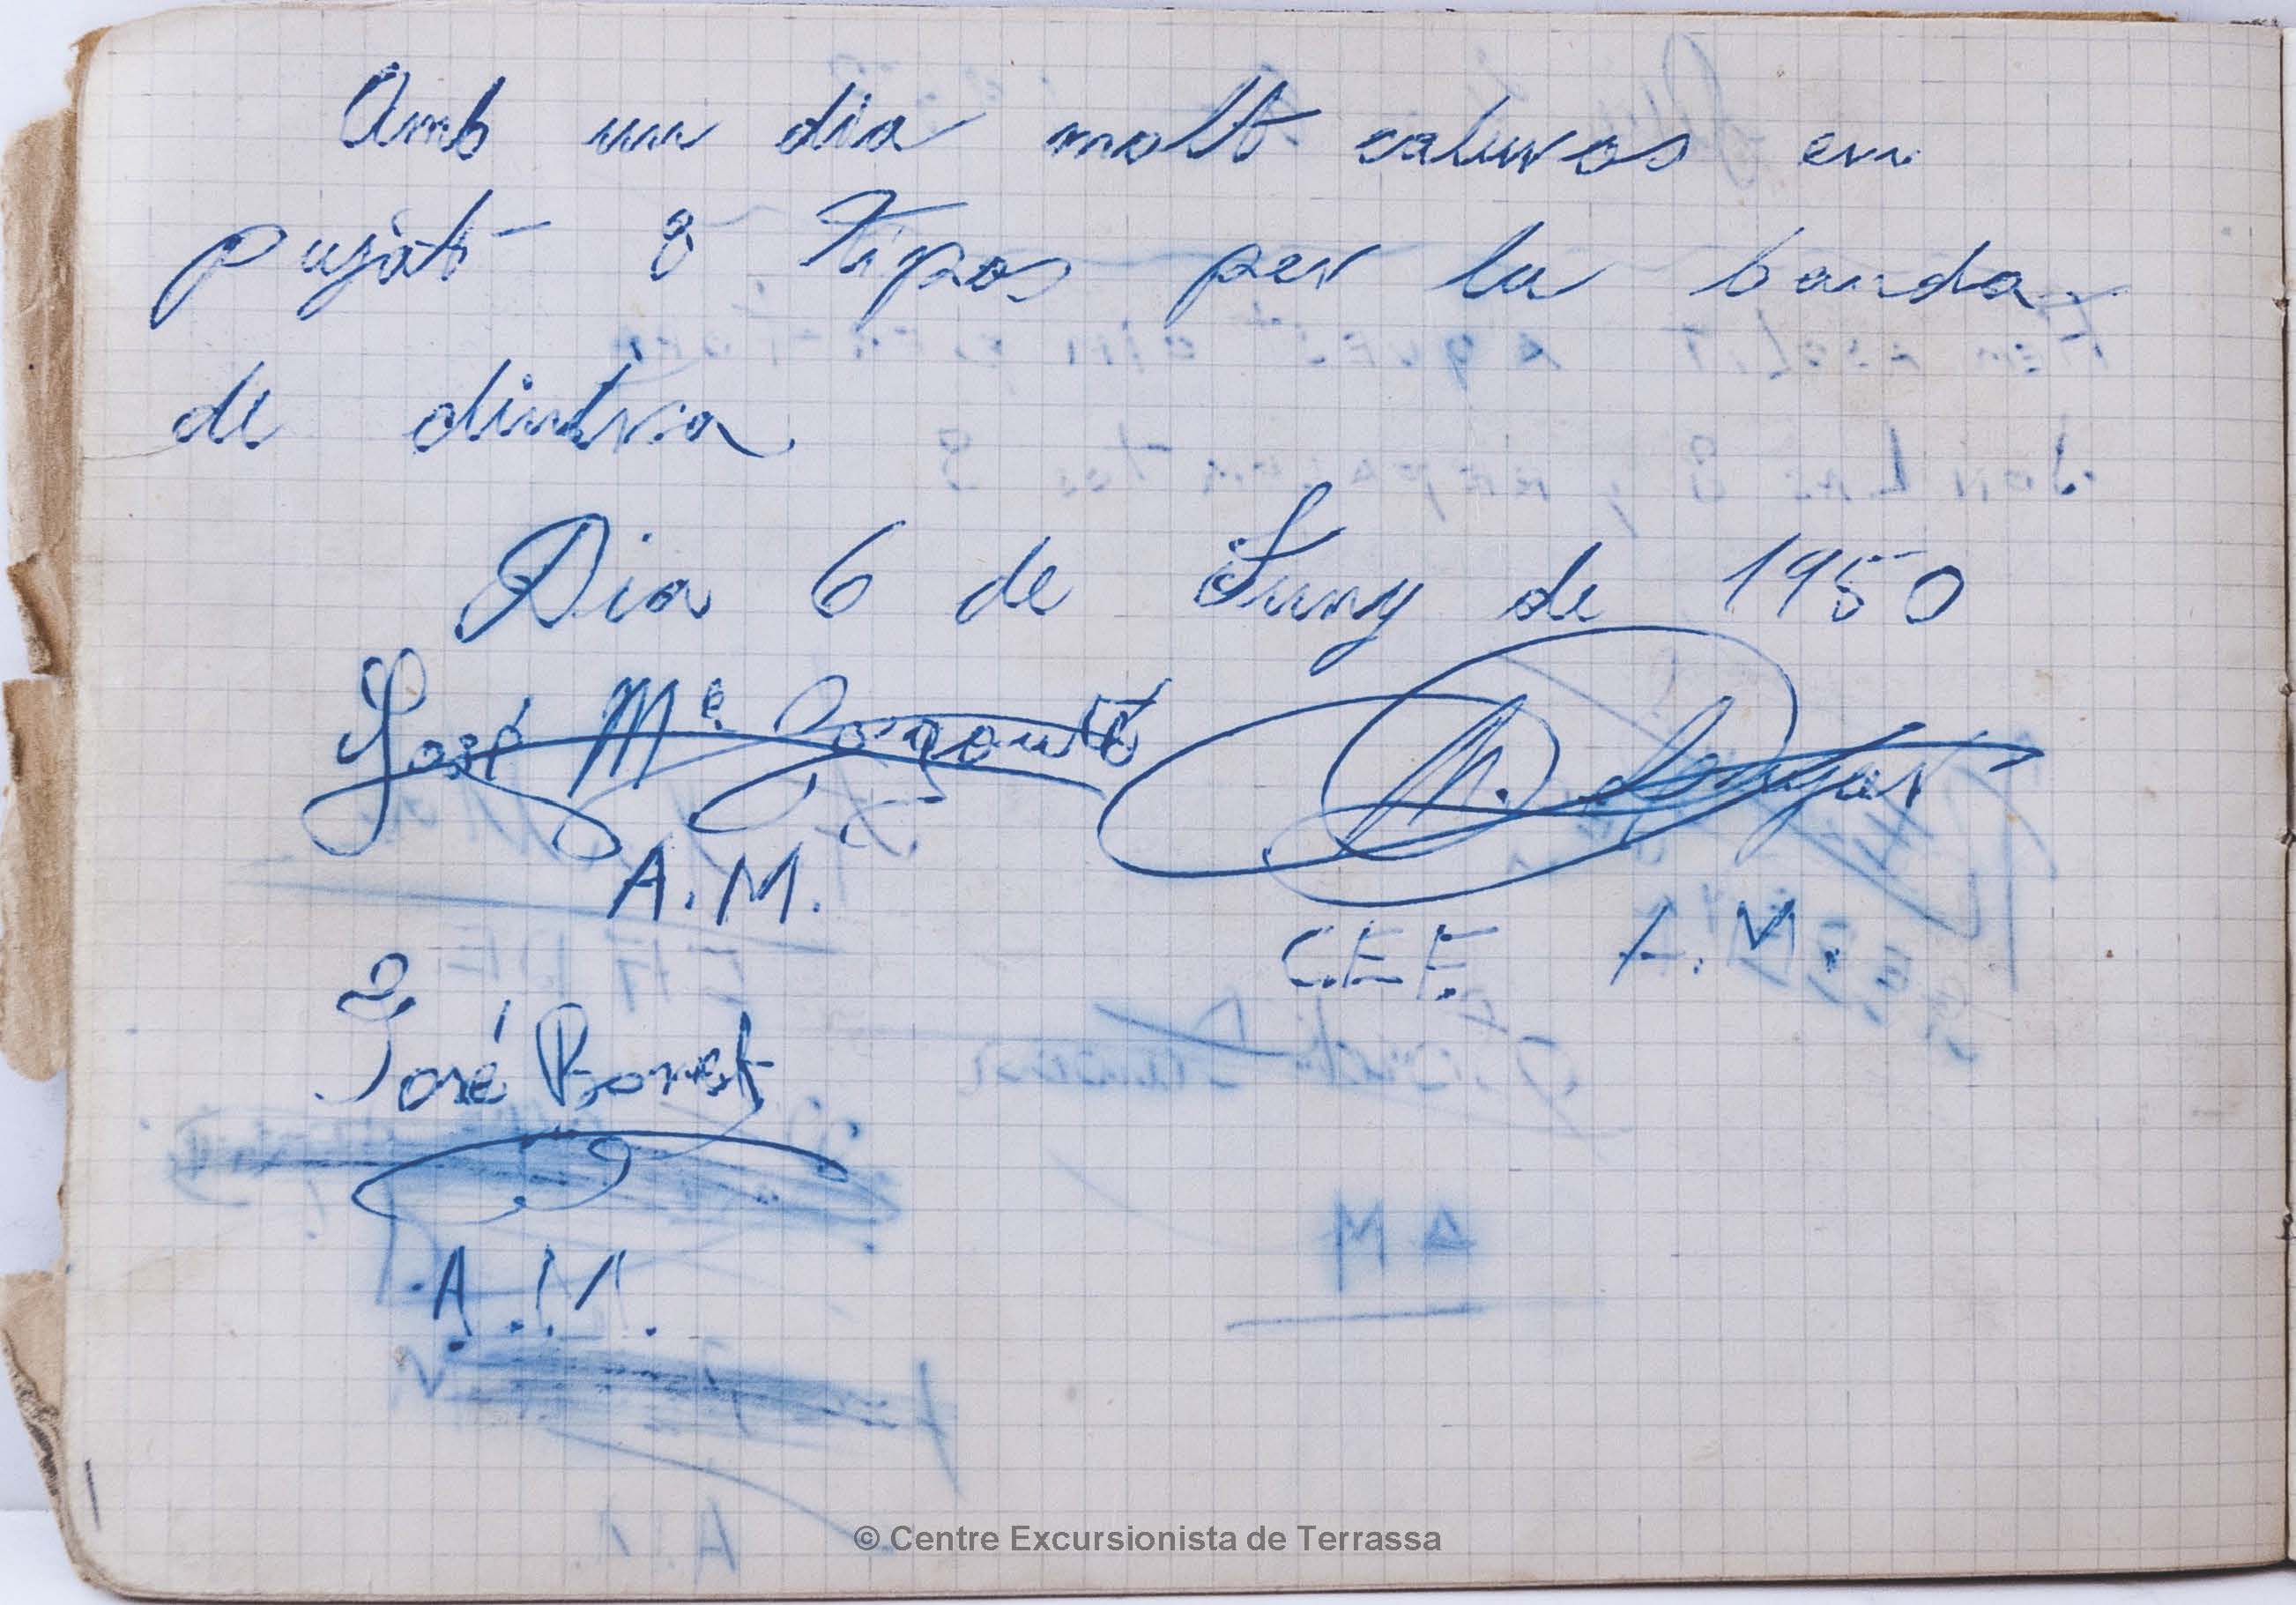 Amb un dia molt caluros em
pujat 8 tipos per la banda
de dintra.
Dia 6 de Juny de 1950
José Mª
M.
A. M.
C.E.E. A. M.
José Bonet
A. M.
© Centre Excursionista de Terrassa